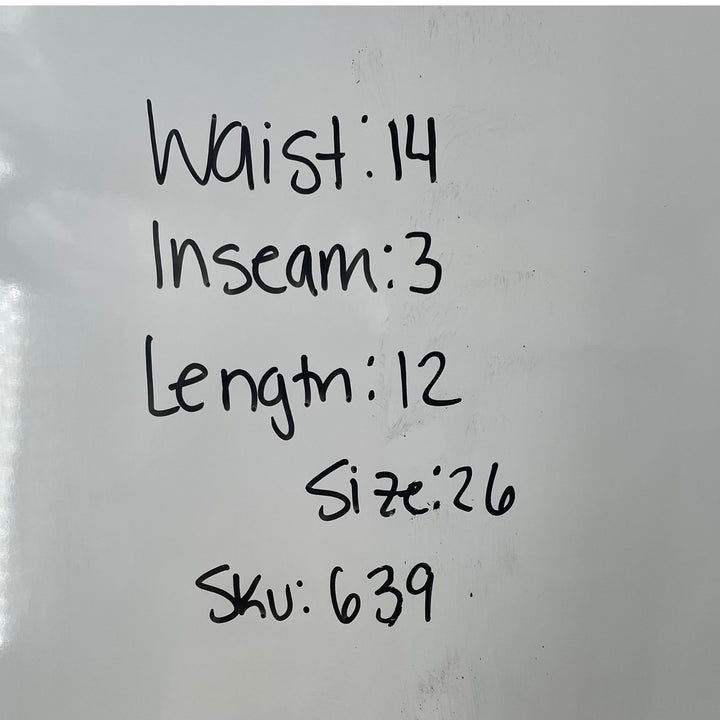 Waist: 14
Inseam: 3
Length: 12
Size: 26
Sku: 639